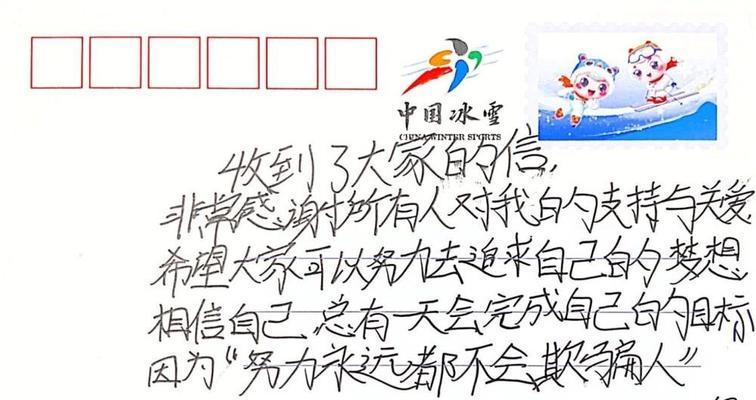 中国冰雪
CHINA WINTER SPORTS
收到了大家的信,
非常感谢所有人对我的支持与关爱
希望大家可以努力去追求自己的梦想
相信自己,总有一天会完成自己的目标
因为“努力永远都不会欺骗人”